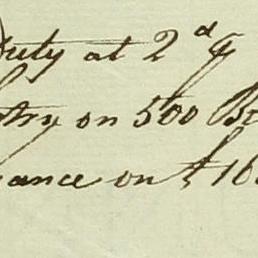 Duty at 2d ⅌
try on 500 B
ance on £ 16